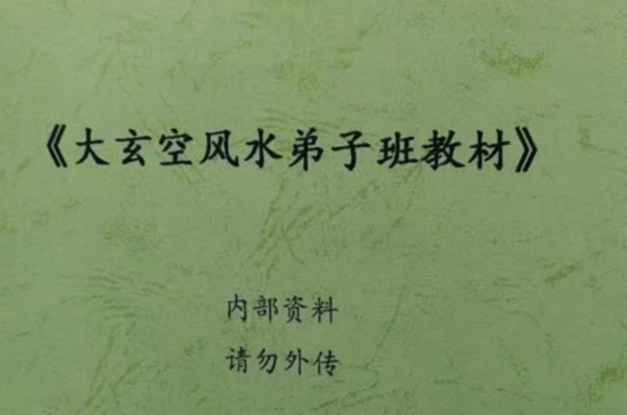 《大玄空风水弟子班教材》
内部资料
请勿外传